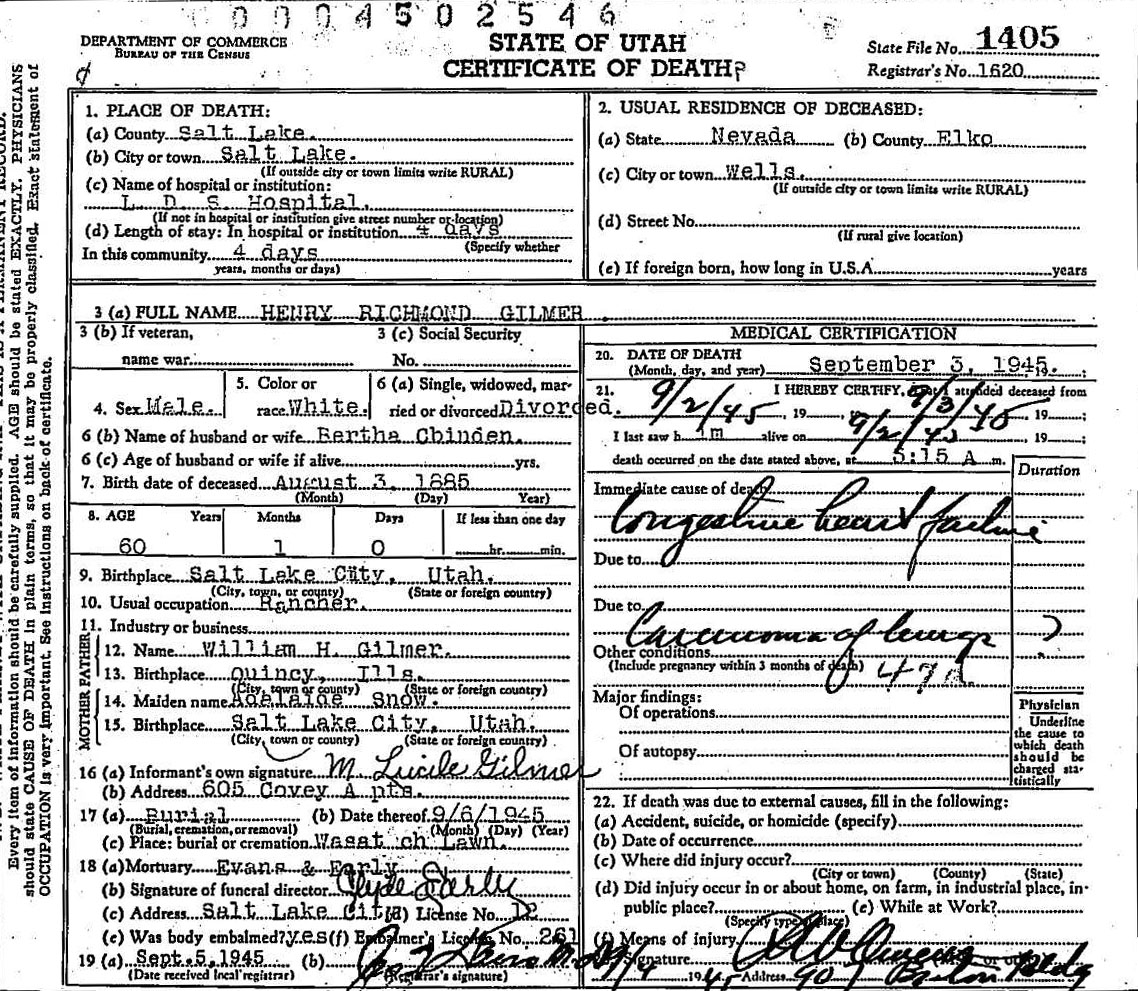 0004502546
DEPARTMENT OF COMMERCE
BUREAU OF THE CENSUS
STATE OF UTAH
CERTIFICATE OF DEATH
State File No. 1405
Registrar's No. 1620
Every item of information should be carefully supplied. AGE should be stated EXACTLY. PHYSICIANS
should state CAUSE OF DEATH in plain terms, so that it may be properly classified. Exact statement of
OCCUPATION is very important. See instructions on back of certificate.
1. PLACE OF DEATH:
(a) County Salt Lake.
(b) City or town Salt Lake.
(If outside city or town limits write RURAL)
(c) Name of hospital or institution:
L. D. S. Hospital.
(If not in hospital or institution give street number or location)
(d) Length of stay: In hospital or institution 4 days
(Specify whether
In this community 4 days
years, months or days)
2. USUAL RESIDENCE OF DECEASED:
(a) State Nevada (b) County Elko
(c) City or town Wells.
(If outside city or town limits write RURAL)
(d) Street No.
(If rural give location)
(e) If foreign born, how long in U.S.A. years
3 (a) FULL NAME HENRY RICHMOND GILMER .
3 (b) If veteran,
name war
3 (c) Social Security
No.
4. Sex Male.
5. Color or
race White.
6 (a) Single, widowed, mar-
ried or divorced Divorced.
6 (b) Name of husband or wife Bertha Chinden.
6 (c) Age of husband or wife if alive yrs.
7. Birth date of deceased August 3, 1885
(Month) (Day) Year)
8. AGE Years Months Days If less than one day
60 1 0 hr. min.
9. Birthplace Salt Lake City, Utah.
(City, town, or county) (State or foreign country)
10. Usual occupation Rancher.
11. Industry or business
FATHER
12. Name William H. Gilmer.
13. Birthplace Quincy, Ills.
(City, town or county) (State or foreign country)
MOTHER
14. Maiden name Adelaide Snow.
15. Birthplace Salt Lake City, Utah.
(City, town or county) (State or foreign country)
16 (a) Informant's own signature M. Lucile Gilmer
(b) Address 605 Covey Apts.
17 (a) Burial (b) Date thereof 9/6/1945
(Burial, cremation, or removal) (Month) (Day) (Year)
(c) Place: burial or cremation Wasatch Lawn.
18 (a) Mortuary Evans & Early
(b) Signature of funeral director Clyde Early
(c) Address Salt Lake City (d) License No. 12
(e) Was body embalmed? yes (f) Embalmer's License No. 261
19 (a) Sept. 5, 1945 (b) M.D.
(Date received local registrar) (Registrar's signature)
MEDICAL CERTIFICATION
20. DATE OF DEATH
(Month, day, and year) September 3, 1945.
21. I HEREBY CERTIFY, that I attended deceased from
9/2/45, 19 , to 9/3/45, 19 ;
I last saw him alive on 9/2/45, 19 ;
death occurred on the date stated above, at :15 A m.
Duration
Immediate cause of death
Congestive heart failure
Due to
Due to
Carcinoma of lungs ?
Other conditions
(Include pregnancy within 3 months of death) 47
Major findings:
Of operations
Of autopsy
Physician
Underline
the cause to
which death
should be
charged sta-
tistically
22. If death was due to external causes, fill in the following:
(a) Accident, suicide, or homicide (specify)
(b) Date of occurrence
(c) Where did injury occur?
(City or town) (County) (State)
(d) Did injury occur in or about home, on farm, in industrial place, in
public place? (e) While at Work?
(Specify type of place)
(f) Means of injury
Signature
9/4 1945 Address Bldg